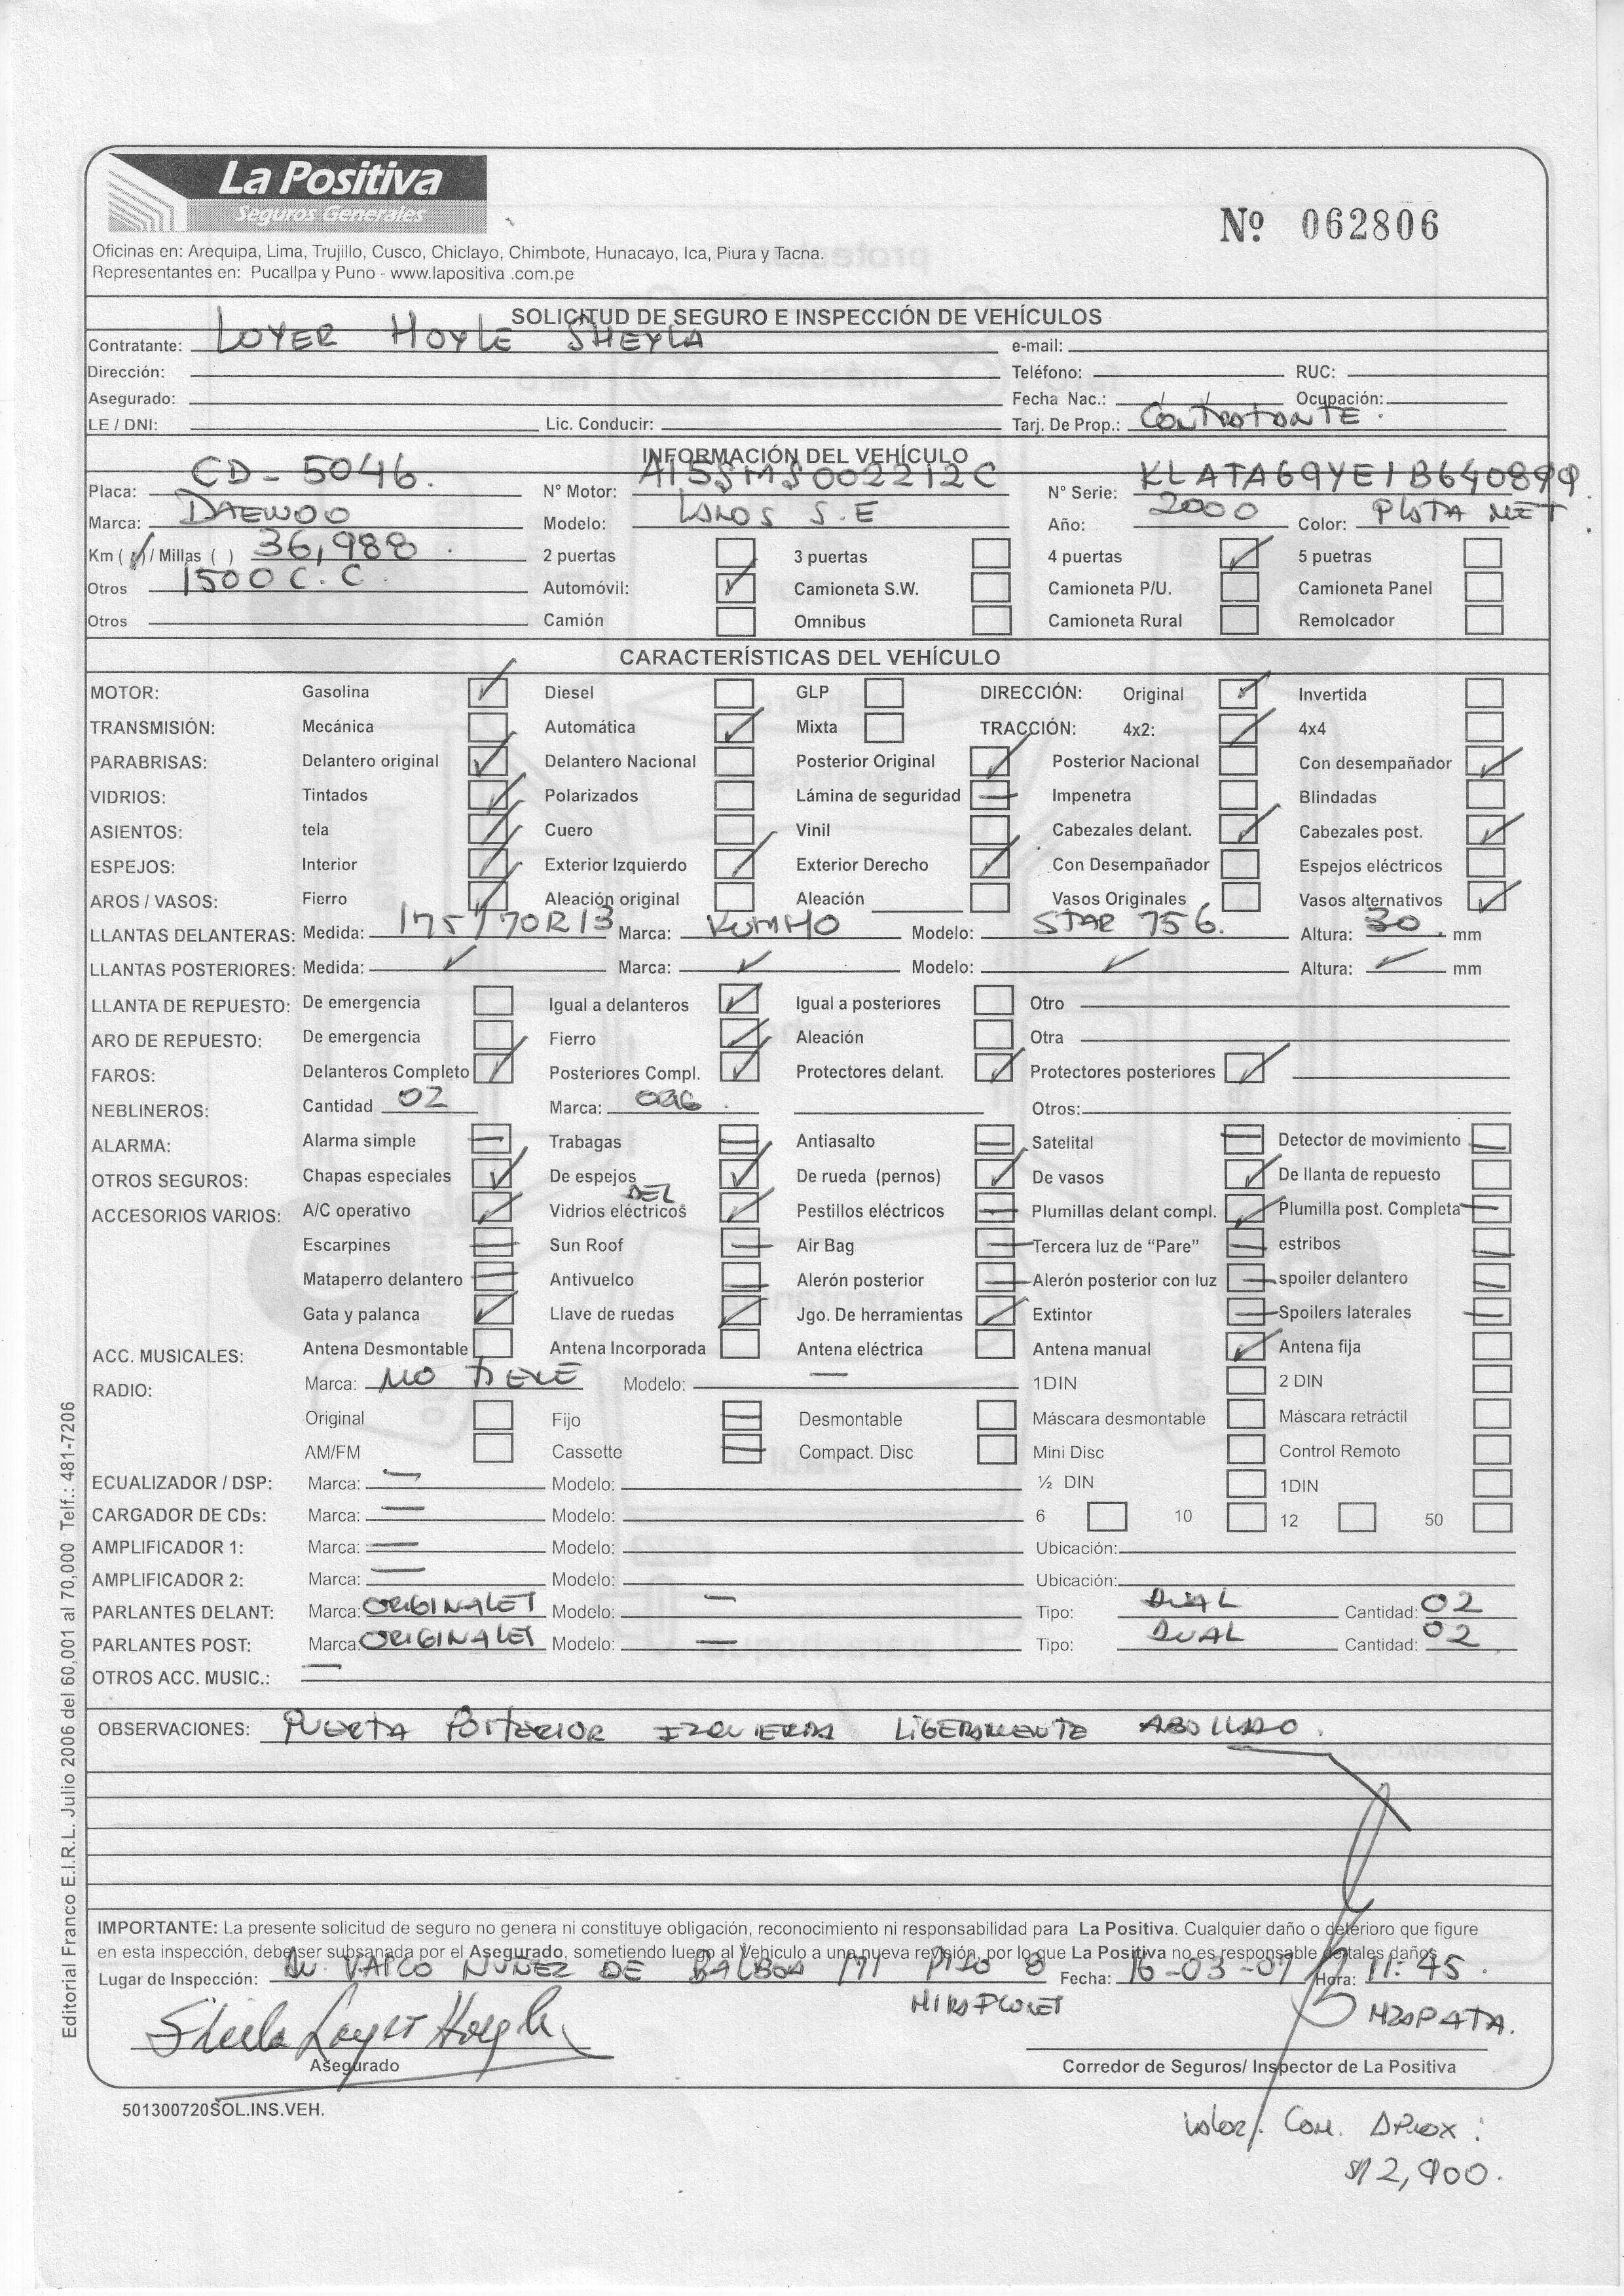 La Positiva
Seguros Generales
Nº 062806
Oficinas en: Arequipa, Lima, Trujillo, Cusco, Chiclayo, Chimbote, Hunacayo, Ica, Piura y Tacna.
Representantes en: Pucallpa y Puno - www.lapositiva .com.pe
SOLICITUD DE SEGURO E INSPECCIÓN DE VEHÍCULOS
Contratante: LOYER HOYLE SHEYLA e-mail:
Dirección: Teléfono: RUC:
Asegurado: Fecha Nac.: / / Ocupación:
LE / DNI: Lic. Conducir: Tarj. De Prop.: CONTRATANTE.
INFORMACIÓN DEL VEHÍCULO
Placa: CD-5046. N° Motor: A15SMS002212C N° Serie: KLATA69YE1B640899.
Marca: DAEWOO Modelo: LANOS S.E Año: 2000 Color: PLATA MET.
Km ( ✓ ) / Millas ( ) 36,988. 2 puertas 3 puertas 4 puertas ✓ 5 puetras
Otros 1500 C.C. Automóvil: ✓ Camioneta S.W. Camioneta P/U. Camioneta Panel
Otros Camión Omnibus Camioneta Rural Remolcador
CARACTERÍSTICAS DEL VEHÍCULO
MOTOR: Gasolina ✓ Diesel GLP DIRECCIÓN: Original ✓ Invertida
TRANSMISIÓN: Mecánica Automática ✓ Mixta TRACCIÓN: 4x2: ✓ 4x4
PARABRISAS: Delantero original ✓ Delantero Nacional Posterior Original ✓ Posterior Nacional Con desempañador ✓
VIDRIOS: Tintados ✓ Polarizados Lámina de seguridad — Impenetra Blindadas
ASIENTOS: tela ✓ Cuero Vinil Cabezales delant. ✓ Cabezales post. ✓
ESPEJOS: Interior ✓ Exterior Izquierdo ✓ Exterior Derecho ✓ Con Desempañador Espejos eléctricos
AROS / VASOS: Fierro ✓ Aleación original Aleación Vasos Originales Vasos alternativos ✓
LLANTAS DELANTERAS: Medida: 175/70R13 Marca: KUMHO Modelo: STAR 756. Altura: 30. mm
LLANTAS POSTERIORES: Medida: ✓ Marca: ✓ Modelo: ✓ Altura: ✓ mm
LLANTA DE REPUESTO: De emergencia Igual a delanteros ✓ Igual a posteriores Otro
ARO DE REPUESTO: De emergencia Fierro ✓ Aleación Otra
FAROS: Delanteros Completo ✓ Posteriores Compl. ✓ Protectores delant. ✓ Protectores posteriores ✓
NEBLINEROS: Cantidad 02 Marca: Otros:
ALARMA: Alarma simple — Trabagas — Antiasalto — Satelital — Detector de movimiento —
OTROS SEGUROS: Chapas especiales ✓ De espejos ✓ De rueda (pernos) ✓ De vasos ✓ De llanta de repuesto
DEL
ACCESORIOS VARIOS: A/C operativo ✓ Vidrios eléctricos ✓ Pestillos eléctricos — Plumillas delant compl. ✓ Plumilla post. Completa —
Escarpines — Sun Roof — Air Bag — Tercera luz de "Pare" — estribos —
Mataperro delantero — Antivuelco — Alerón posterior — Alerón posterior con luz — spoiler delantero —
Gata y palanca ✓ Llave de ruedas ✓ Jgo. De herramientas ✓ Extintor — Spoilers laterales —
ACC. MUSICALES: Antena Desmontable Antena Incorporada Antena eléctrica Antena manual ✓ Antena fija
RADIO: Marca: NO TIENE Modelo: — 1DIN 2 DIN
Original Fijo — Desmontable Máscara desmontable Máscara retráctil
AM/FM Cassette — Compact. Disc Mini Disc Control Remoto
ECUALIZADOR / DSP: Marca: — Modelo: ½ DIN 1DIN
CARGADOR DE CDs: Marca: — Modelo: 6 10 12 50
AMPLIFICADOR 1: Marca: — Modelo: Ubicación:
AMPLIFICADOR 2: Marca: — Modelo: Ubicación:
PARLANTES DELANT: Marca: ORIGINALES Modelo: — Tipo: DUAL Cantidad: 02
PARLANTES POST: Marca: ORIGINALES Modelo: — Tipo: DUAL Cantidad: 02
OTROS ACC. MUSIC.: —
OBSERVACIONES: PUERTA POSTERIOR IZQUIERDA LIGERAMENTE ABOLLADO.
IMPORTANTE: La presente solicitud de seguro no genera ni constituye obligación, reconocimiento ni responsabilidad para La Positiva. Cualquier daño o deterioro que figure
en esta inspección, debe ser subsanada por el Asegurado, sometiendo luego al Vehiculo a una nueva revisión, por lo que La Positiva no es responsable de tales daños
Lugar de Inspección: AV. VASCO NUÑEZ DE BALBOA 171 PISO 8 Fecha: 16-03-07 Hora: 11:45.
MIRAFLORES
Sheila Loyer Hoyle
MZAPATA.
Asegurado Corredor de Seguros/ Inspector de La Positiva
501300720SOL.INS.VEH.
Valor. Com. Aprox:
2,900.
Editorial Franco E.I.R.L. Julio 2006 del 60,001 al 70,000 Telf.: 481-7206